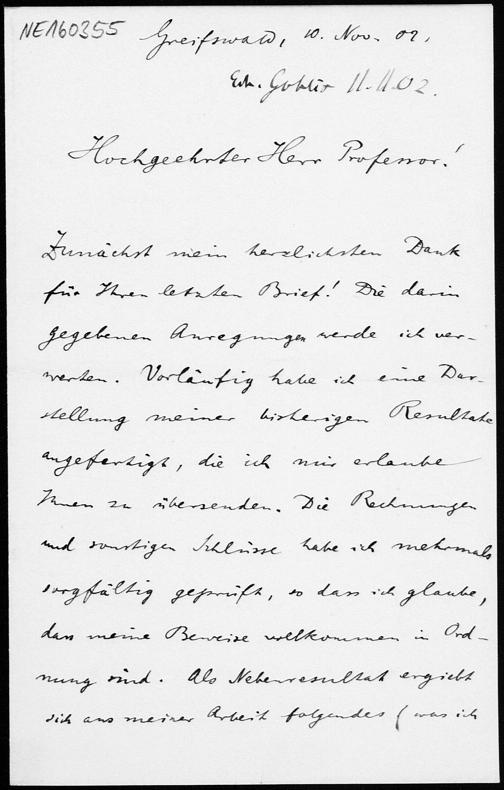 NE160355
Greifswald, 10. Nov. 02.
11.11.02.
Hochgeehrter Herr Professor!
Zunächst mein herzlichsten Dank
für Ihren letzten Brief! Die darin
gegebenen Anregungen werde ich ver-
werten. Vorläufig habe ich eine Dar-
stellung meiner bisherigen Resultate
angefertigt, die ich mir erlaube
Ihnen zu übersenden. Die Rechnungen
und sonstigen Schlüsse habe ich mehrmals
sorgfältig geprüft, so dass ich glaube,
dass meine Beweise vollkommen in Ord-
nung sind. Als Nebenresultat ergiebt
sich aus meiner Arbeit folgendes (was ich